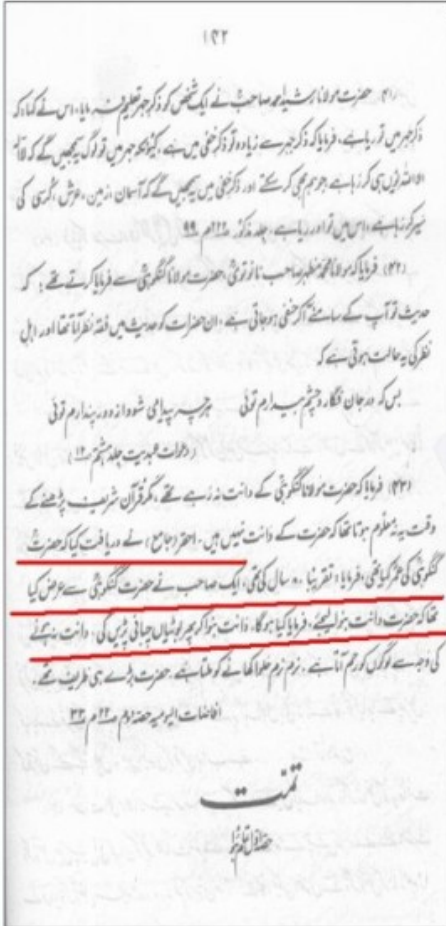 ۱۴۲
(۴۱) حضرت مولانا رشید احمد صاحبؒ نے ایک شخص کو ذکر جہر تعلیم فرمایا، اس نے کہا کہ
ذکر جہر میں تو ریا ہے، فرمایا کہ ذکر جہر سے زیادہ تو ذکر خفی میں ہے، کیونکہ جہر میں تو لوگ سمجھیں گے کہ لا الٰہ
الا اللہ ہی کر رہا ہے، جو ہم بھی کر سکتے اور ذکر خفی میں سمجھیں گے کہ آسمان، زمین، عرش، کرسی کی
سیر کر رہا ہے، اس میں تو اور ریا ہے،
(۴۲) فرمایا کہ مولانا محمد مظہر صاحب نانوتویؒ، حضرت مولانا گنگوہیؒ سے فرمایا کرتے تھے؛ کہ
حدیث تو آپ کے سامنے آکر حنفی ہو جاتی ہے، ان حضرات کو حدیث میں فقہ نظر آتا تھا اور اہل
نظر کی یہ حالت ہوتی ہے کہ
بس کہ در جان فگار و چشم بیدارم توئی ہرچہ پیدا می شود از دور پندارم توئی
(دعوات عبدیت جلد ہشتم
(۴۳) فرمایا کہ حضرت مولانا گنگوہیؒ کے دانت نہ رہے تھے، مگر قرآن شریف پڑھنے کے
وقت یہ نہ معلوم ہوتا تھا کہ حضرت کے دانت نہیں ہیں۔ احقر (جامع) نے دریافت کیا کہ حضرت
گنگوہیؒ کی عمر کیا تھی، فرمایا؛ تقریباً سال کی تھی، ایک صاحب نے حضرت گنگوہیؒ سے عرض کیا
تھا کہ حضرت دانت بنوا لیجئے، فرمایا کیا ہوگا، دانت بنوا کر پھر بوٹیاں چبانی پڑیں گی، دانت نہ ہونے
کی وجہ سے لوگوں کو رحم آتا ہے، نرم نرم حلوا کھانے کو ملتا ہے، حضرت بڑے ہی ظریف تھے
افاضات الیومیہ حصہ دوم
تمت